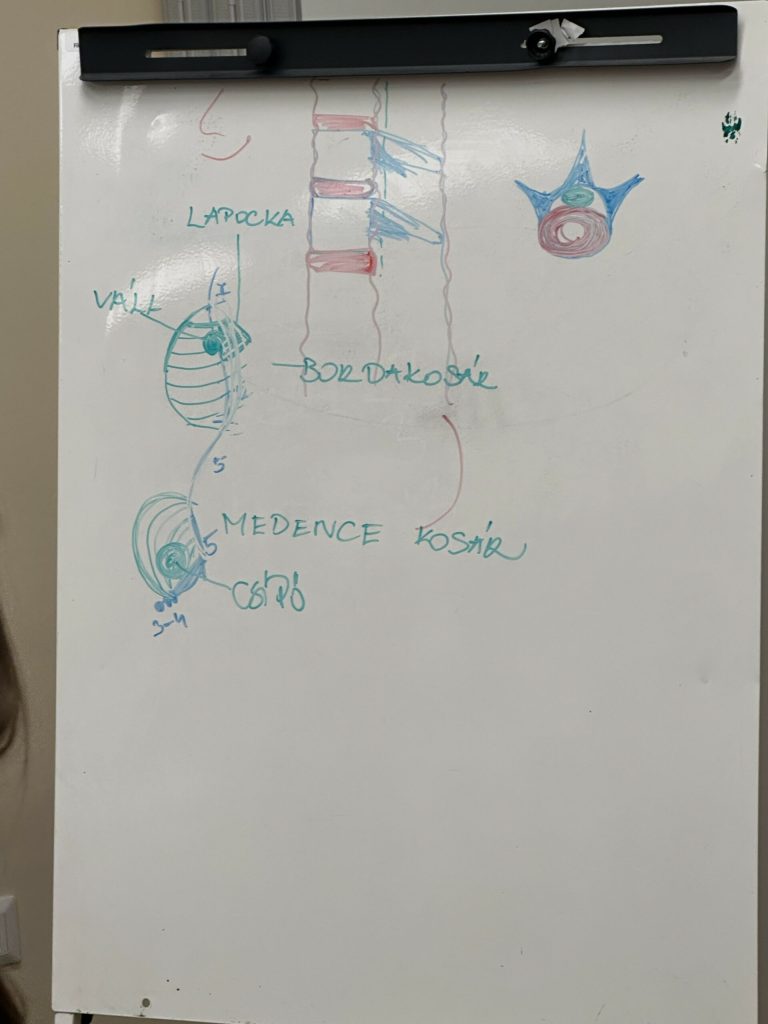 LAPOCKA
VÁLL
BORDAKOSÁR
5
MEDENCE KOSÁR
5
CSÍPŐ
3-4